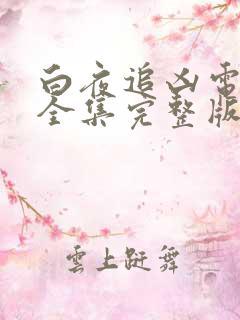 白夜追凶電
全集完整版
雲上踨舞